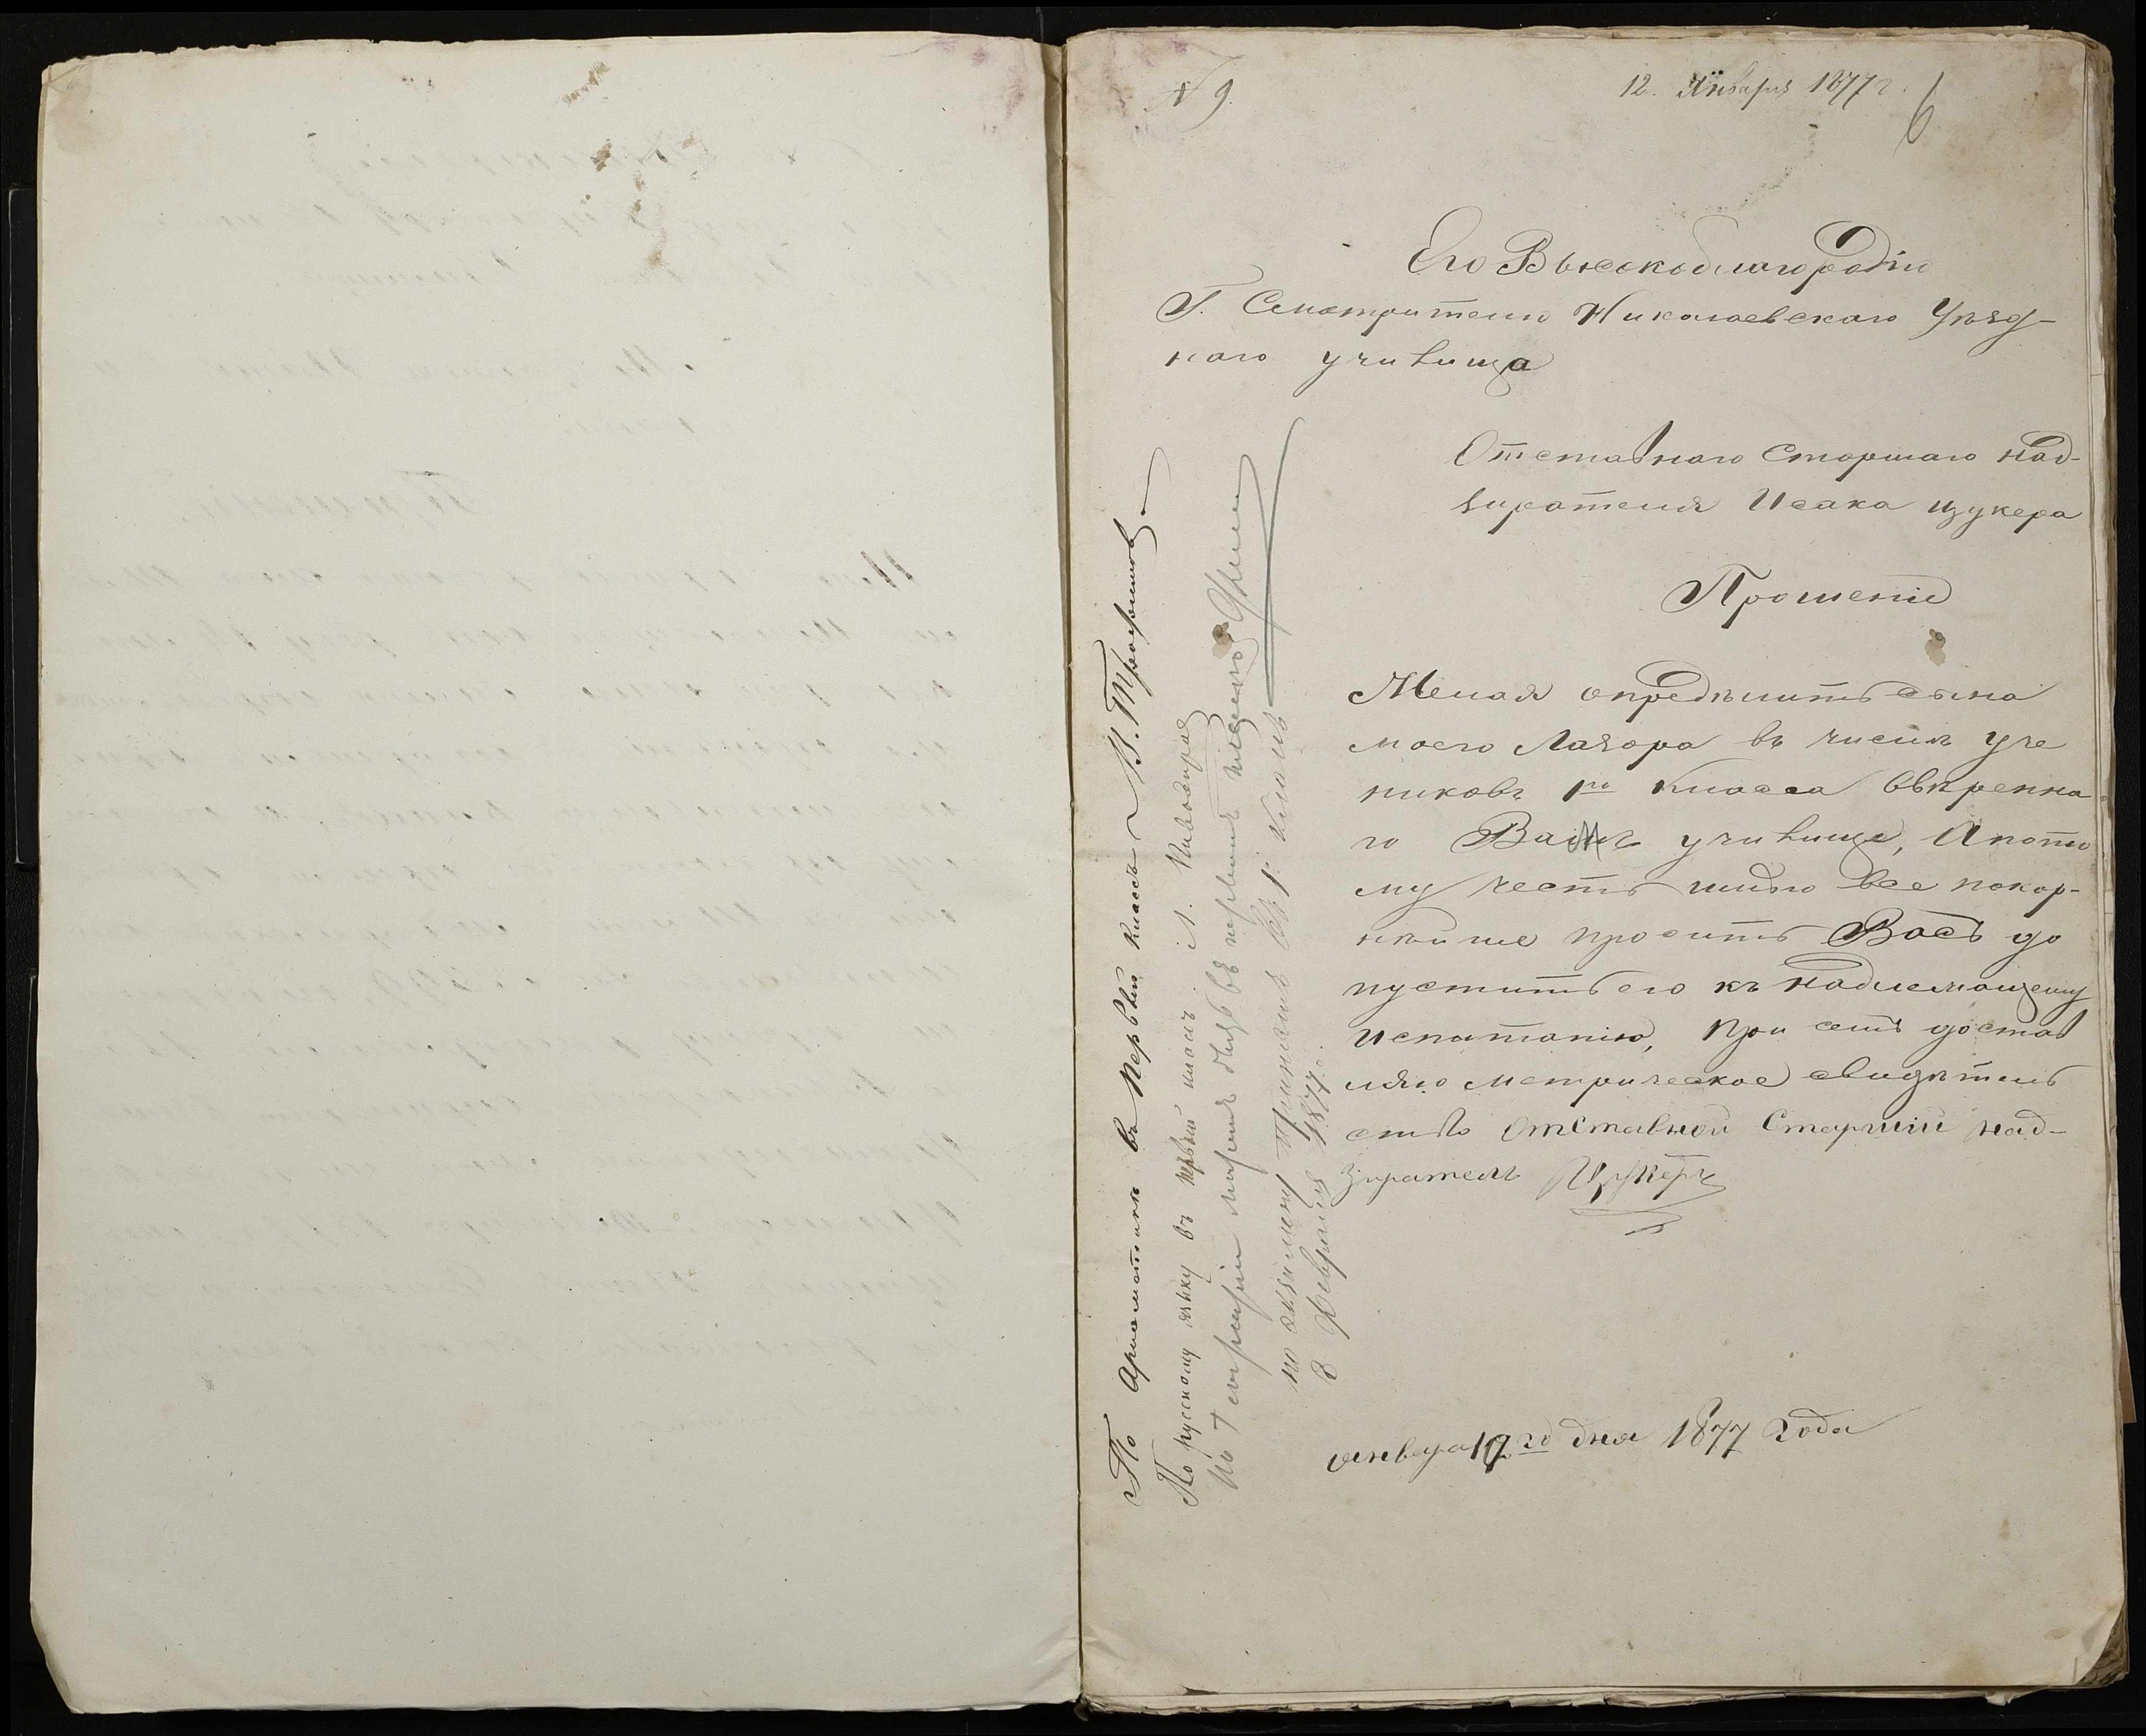 № 9.
12. Января 1877 г.
6
Его Высокоблагородію
Г. Смотрителю Николаевскаго Уѣзд-
наго училища
Отставнаго Старшаго над-
зирателя Исака Цукера
Прошеніе
Желая опредѣлить сына
моего Лазора въ число уче
никовъ 1го класса ввѣренна
го Вамъ училища, А пото
му честь имѣю все покор-
нѣйше просить Васъ до
пустить его къ надлежащему
испитанію, При семъ достав
ляю метрическое свидѣтель
ство Отставной Старшій над-
зиратель Цукеръ
января 12го дня 1877 Года
По Ариѳметикѣ въ Первый классъ
По русскому языку въ первый классъ.
По Географіи можетъ быть въ первомъ классѣ
по экзамену принятъ въ 1й классъ
8 Февраля 1877 г.